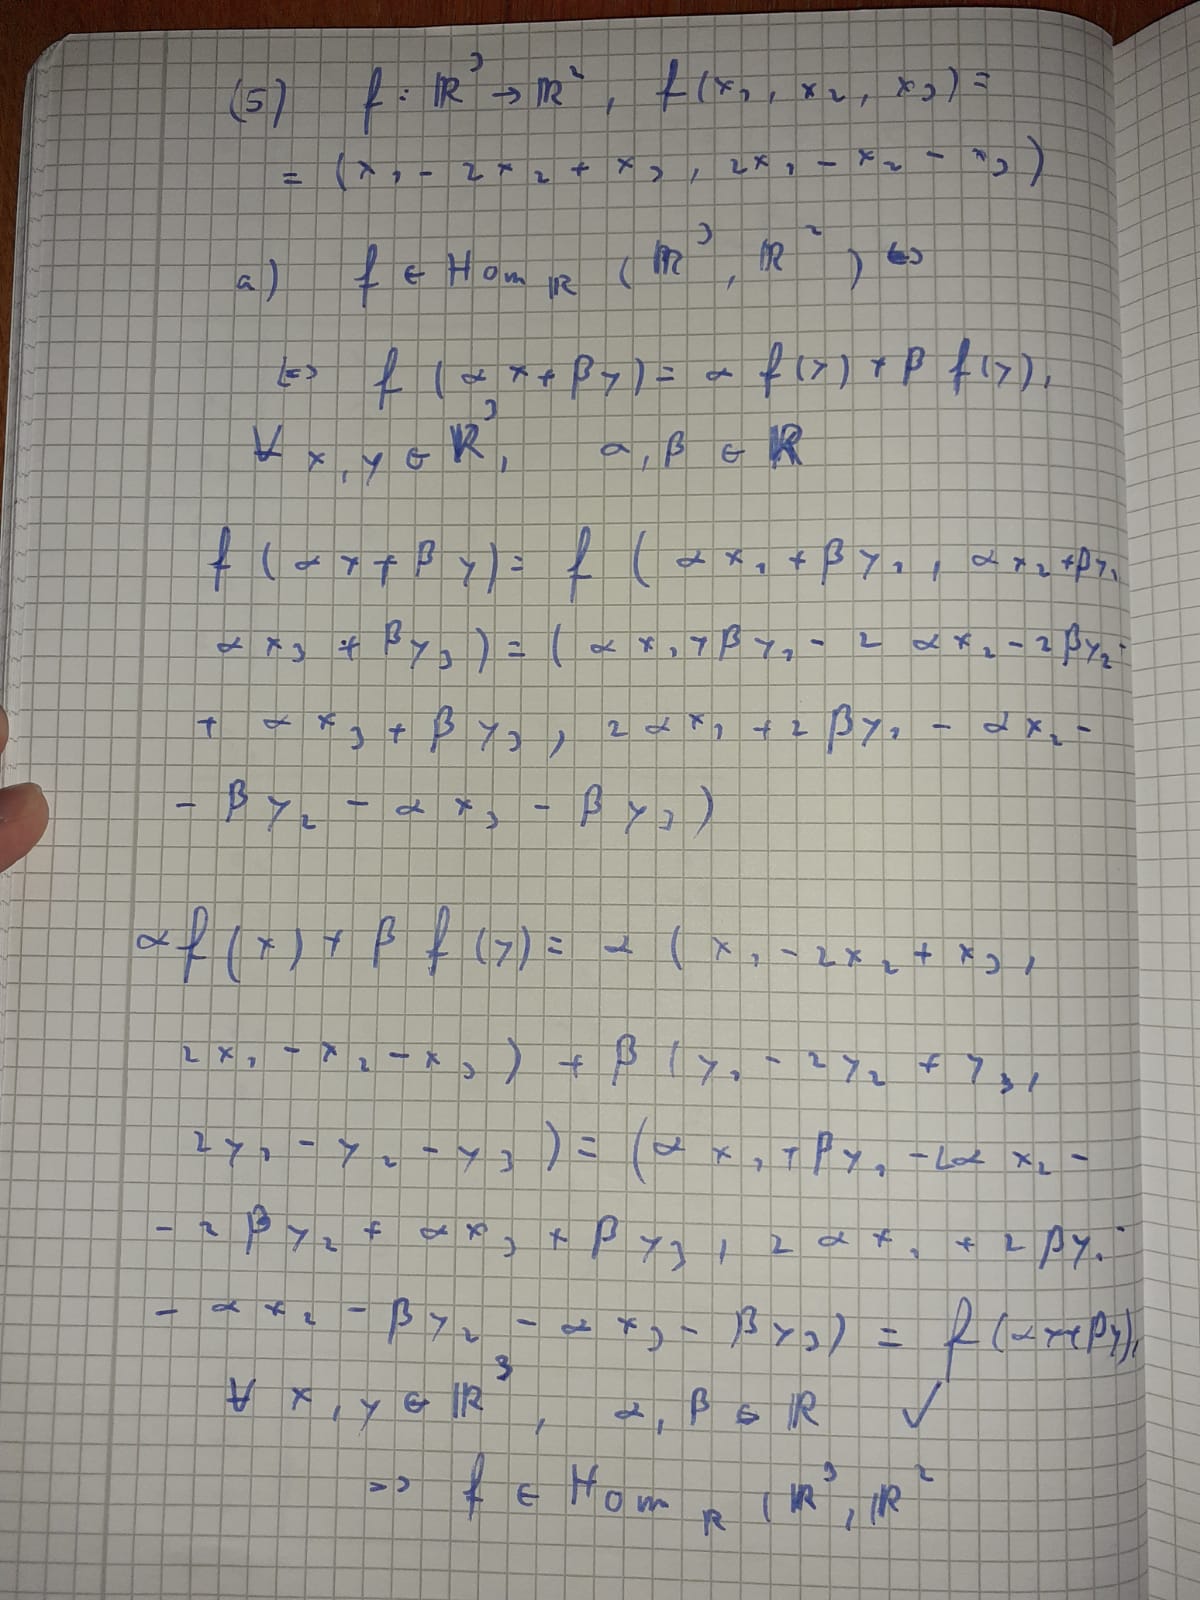 (5) f : ℝ³ → ℝ², f(x₁, x₂, x₃) =
= (x₁ - 2x₂ + x₃, 2x₁ - x₂ - x₃)
a) f ∈ Hom_ℝ (ℝ³, ℝ²) ⇔
⇔ f (αx + βy) = α f(y) + β f(y),
∀ x, y ∈ ℝ³, α, β ∈ ℝ
f (αx + βy) = f (αx₁ + βy₁, αx₂ + βy₂
αx₃ + βy₃) = (αx₁ + βy₁ - 2αx₂ - 2βy₂ -
+ αx₃ + βy₃, 2αx₁ + 2βy₁ - αx₂ -
- βy₂ - αx₃ - βy₃)
αf(x) + βf(y) = α (x₁ - 2x₂ + x₃,
2x₁ - x₂ - x₃) + β (y₁ - 2y₂ + y₃,
2y₁ - y₂ - y₃) = (αx₁ + βy₁ - 2αx₂ -
- 2βy₂ + αx₃ + βy₃, 2αx₁ + 2βy₁ -
- αx₂ - βy₂ - αx₃ - βy₃) = f(αx + βy),
∀ x, y ∈ ℝ³, α, β ∈ ℝ ✓
=> f ∈ Hom_ℝ (ℝ³, ℝ²